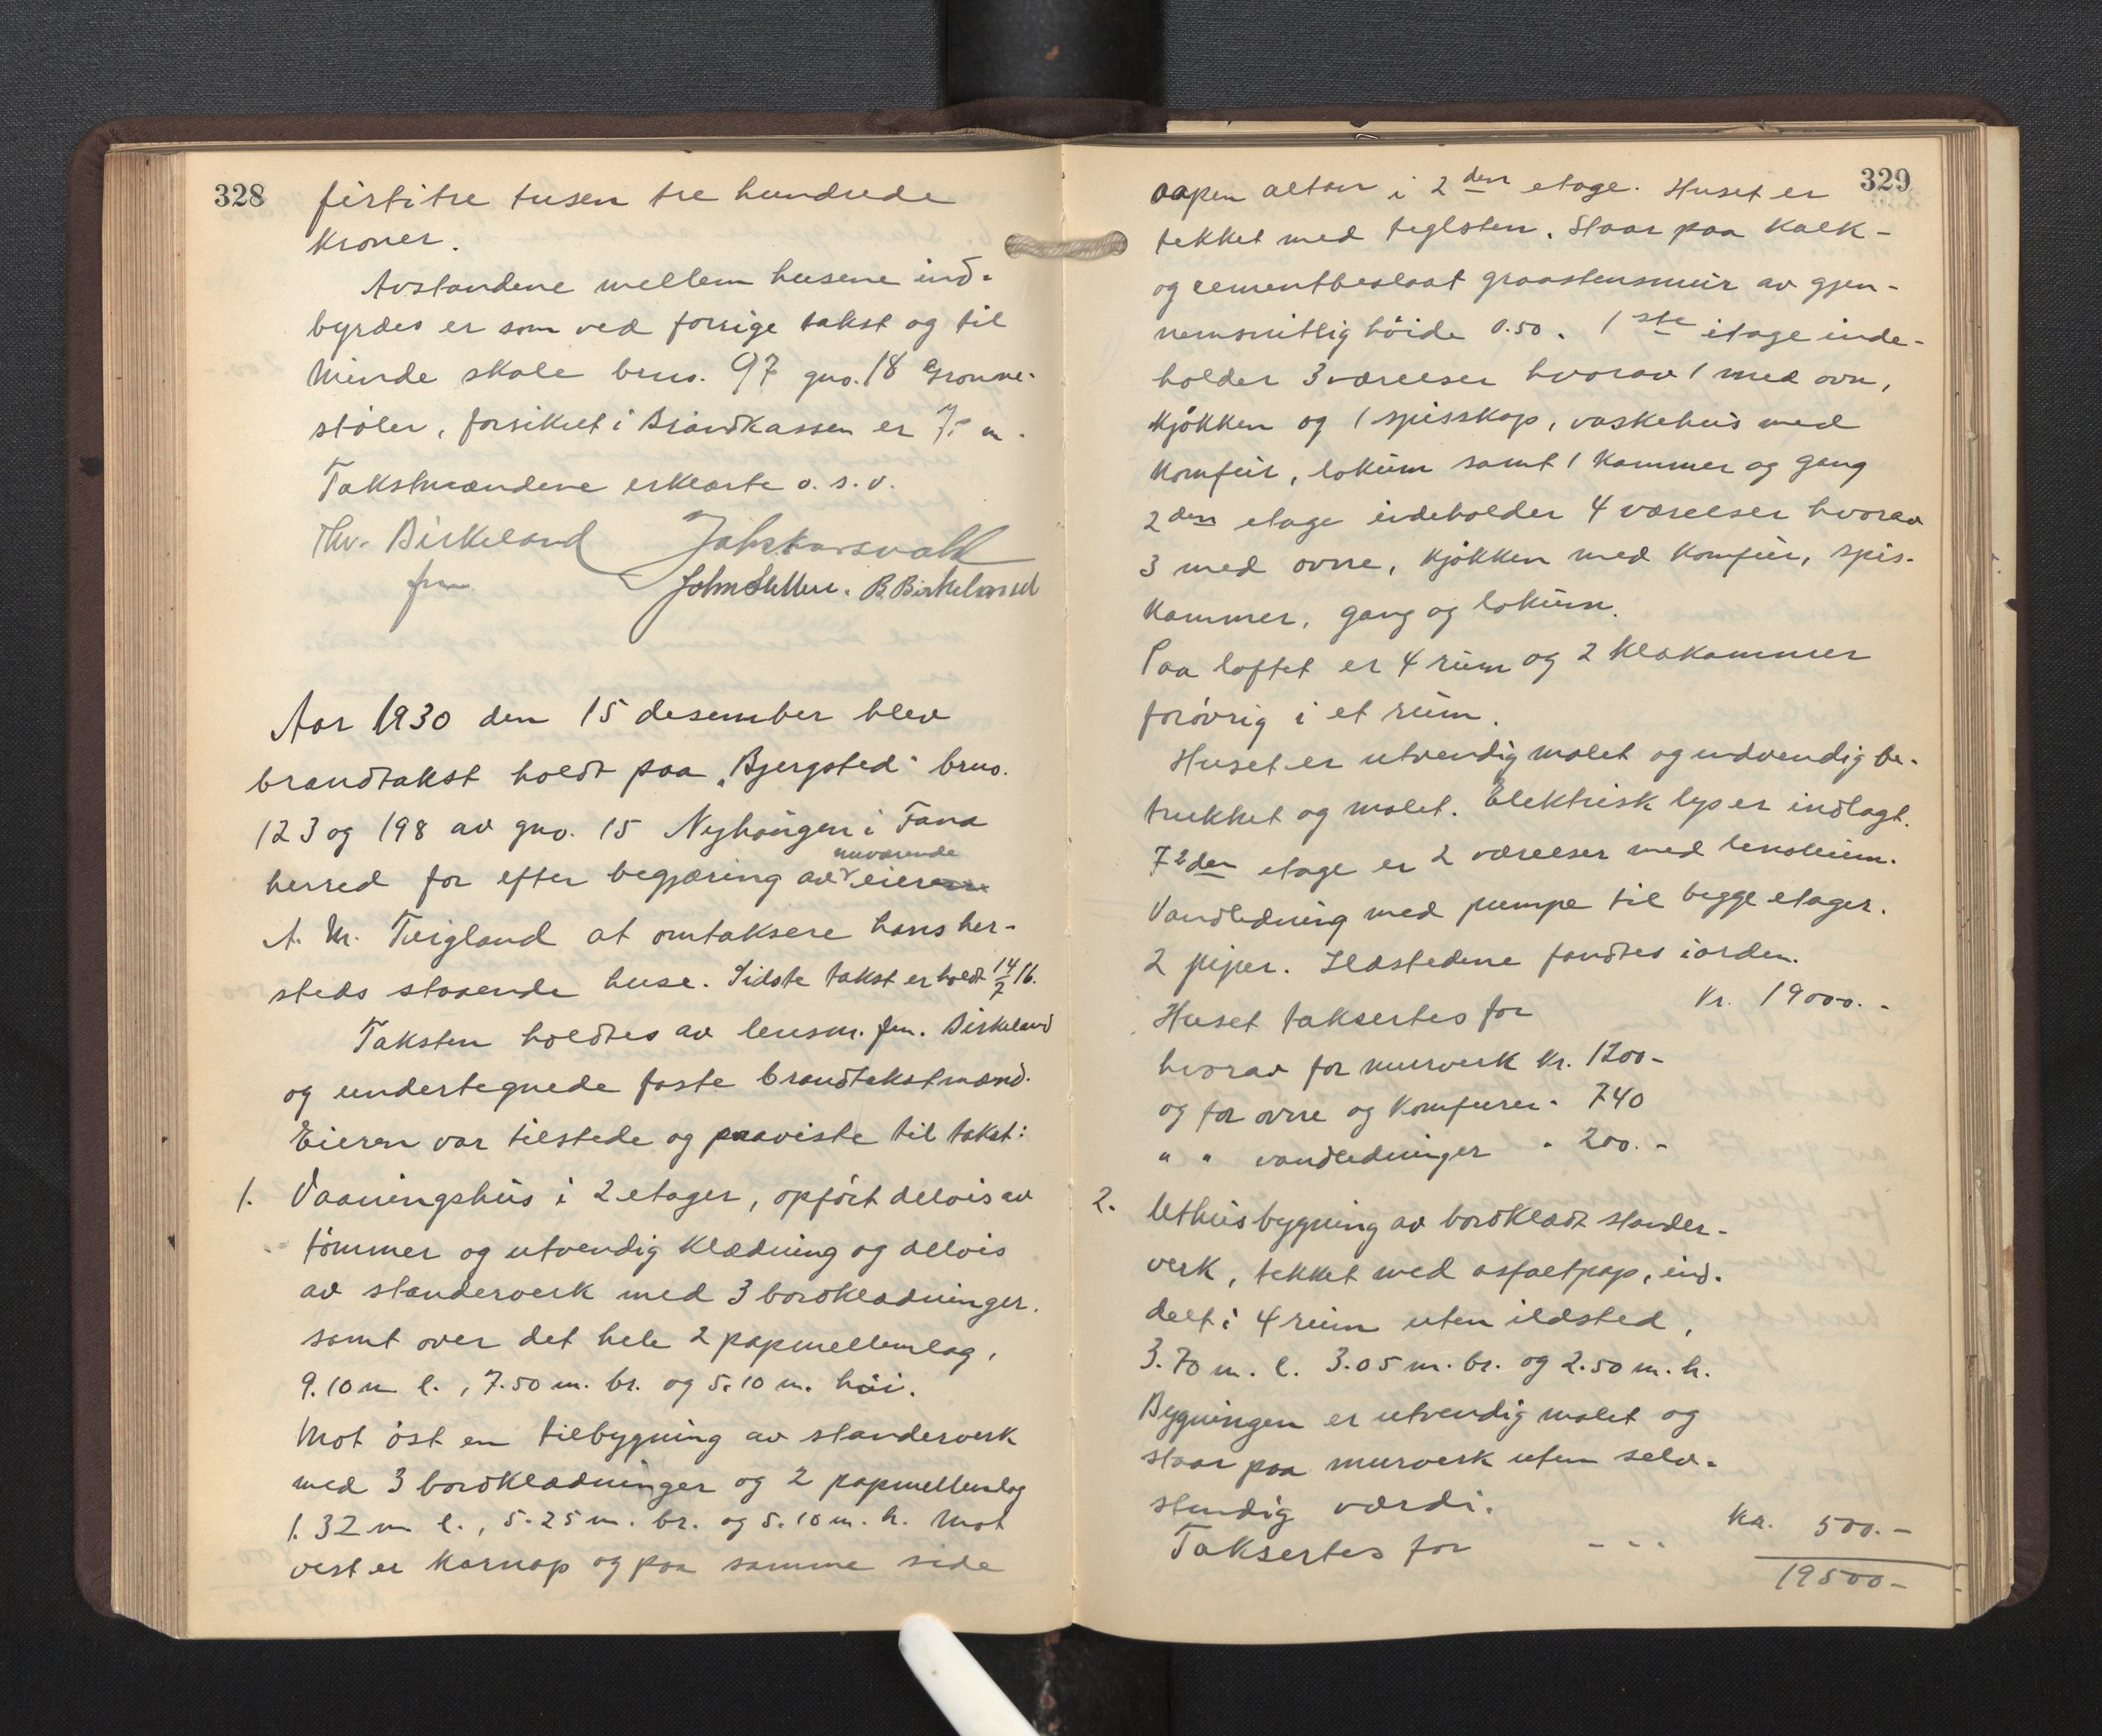 328
firtitre tusen tre hundrede
kroner.
Avstandene mellem husene ind-
byrdes er som ved forrige takst og til
Minde skole brno. 97 gno. 18 Grønne-
støler, forsikret i Brandkassen er 75 m.
Takstmændene erklærte o. s. v.
Thv. Birkeland
fm.
John Sletten. B. Birkeland
Aar 1930 den 15 desember blev
brandtakst holdt paa „Bjergsted" brno.
123 og 198 av gno. 15 Nyhaugen i Fana
herred for efter begjæring av nuværende eieren
A. M. Tveigland at omtaksere hans her-
steds staaende huse. Sidste takst er holdt 14/7 16.
Taksten holdtes av lensm. fm. Birkeland
og undertegnede faste brandtakstmænd.
Eieren var tilstede og paaviste til takst:
1. Vaaningshus i 2 etager, opført delvis av
tømmer og utvendig klædning og delvis
av standerverk med 3 bordklædninger,
samt over det hele 2 papmellemlag,
9.10 m l., 7.50 m. br. og 5.10 m. høi.
Mot øst en tilbygning av standerverk
med 3 bordklædninger og 2 papmellemlag
1.32 m l., 5.25 m. br. og 5.10 m. h. Mot
vest er karnap og paa samme side
329
aapen altan i 2den etage. Huset er
tekket med teglsten. Staar paa kalk-
og cementbeslaat graastensmur av gjen-
nemsnitlig höide 0.50. 1ste etage inde-
holder 3 værelser hvorav 1 med ovn,
kjøkken og 1 spisskap, vaskehus med
komfur, lokum samt 1 kammer og gang
2den etage indeholder 4 værelser hvorav
3 med ovne, kjøkken med komfur, spis-
kammer, gang og lokum.
Paa loftet er 4 rum og 2 klækammer
forøvrig i et rum.
Huset er utvendig malet og indvendig be-
trukket og malet. Elektrisk lys er indlagt.
I 2den etage er 2 værelser med linoleum.
Vandledning med pumpe til begge etager.
2 piper. Ildstedene fandtes iorden.
Huset taksertes for Kr. 19000.-
hvorav for murverk kr. 1200-
og for ovne og komfurer " 740
" " vandledninger " 200.-
2. Uthusbygning av bordklædt stander-
verk, tekket med asfaltpap, ind-
delt i 4 rum uten ildsted,
3.70 m. l. 3.05 m. br. og 2.50 m. h.
Bygningen er utvendig malet og
staar paa murverk uten selv-
stendig værdi.
Taksertes for - - - Kr. 500.-
19500-